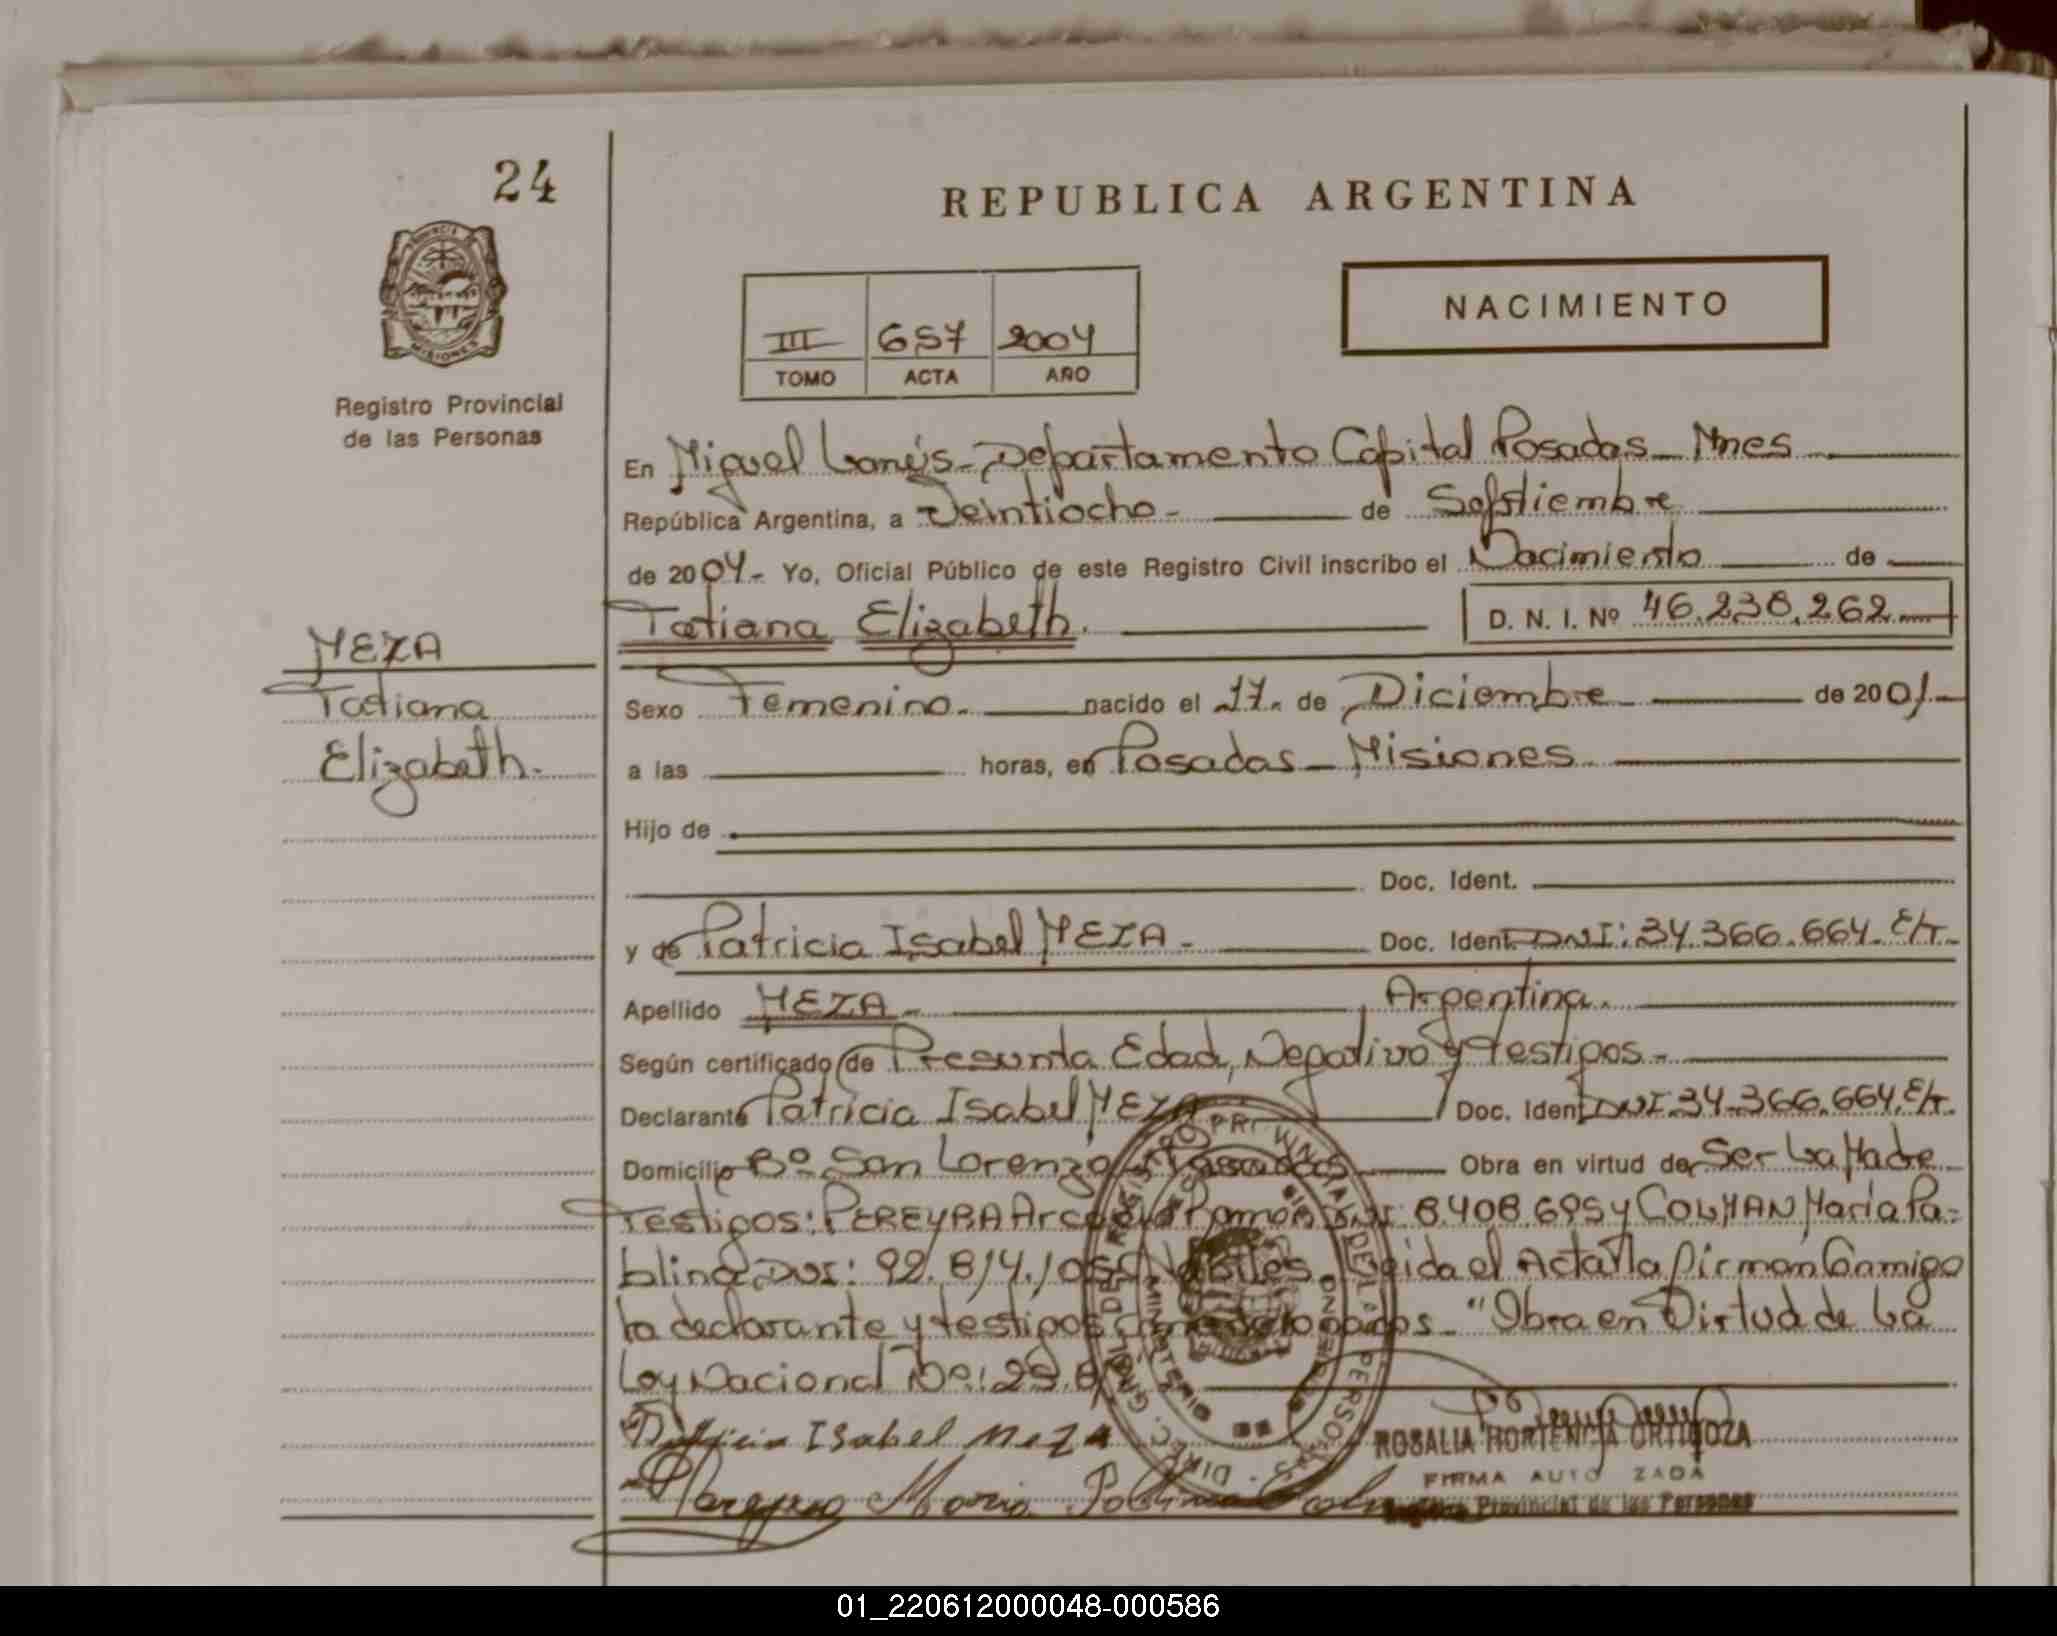 24
REPUBLICA ARGENTINA
PROVINCIA
MISIONES
Registro Provincial
de las Personas
III 657 2004
TOMO ACTA AÑO
NACIMIENTO
En Miguel Lanús - Departamento Capital Posadas - Mnes
República Argentina, a Veintiocho - de Septiembre
de 2004 - Yo, Oficial Público de este Registro Civil inscribo el Nacimiento de
Tatiana Elizabeth. D. N. I. Nº 46.238.262
MEZA
Tatiana
Elizabeth.
Sexo Femenino. nacido el 17. de Diciembre de 2001.-
a las horas, en Posadas - Misiones
Hijo de
Doc. Ident.
y de Patricia Isabel MEZA - Doc. Ident. DNI: 34.366.664. E/T.
Apellido MEZA - Argentina.
Según certificado de Presunta Edad, Negativo y Testigos -
Declarante Patricia Isabel MEZA Doc. Ident. DNI: 34.366.664. E/T.
Domicilio Bº San Lorenzo - Posadas Obra en virtud de Ser La Madre
Testigos: PEREYRA Ramón DNI: 8.408.695 y COLMAN María Pa-
blina DNI: 92.814.105 Hábiles. Leida el Acta la firman Conmigo
la declarante y testigos - "Obra en Virtud de La
Ley Nacional Nº: 25.
Patricia Isabel Meza
Pereyra Maria Pablina Colman
ROSALIA HORTENCIA ORTIGOZA
FIRMA AUTORIZADA
Registro Provincial de las Personas
01_220612000048-000586